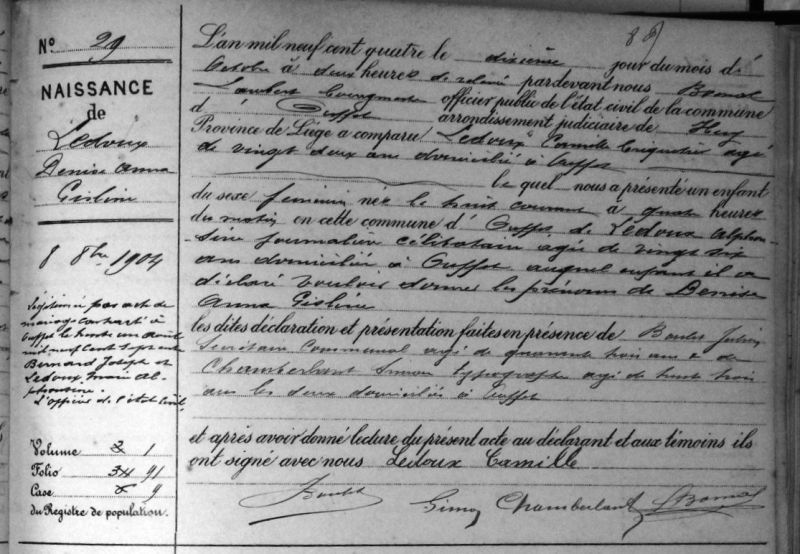 89
N° 29
NAISSANCE
de
Ledoux
Denise Anna
Gisline
8 8bre 1904
Légitimée par acte de
mariage contracté à
Ouffet le trente un août
mil neuf cent sept entre
Bernard Joseph et
Ledoux Marie Al-
phonsine.
L'officier de l'état civil,
Volume 2 1
Folio 34 91
Case 6 9
du Registre de population.
L'an mil neuf cent quatre le dixième jour du mois d'
Octobre à deux heures de relevée pardevant nous Bomal
Lambert Bourgmestre officier public de l'état civil de la commune
d' Ouffet arrondissement judiciaire de Huy
Province de Liége a comparu Ledoux Camille agé
de vingt deux ans domicilié à Ouffet
le quel nous a présenté un enfant
du sexe féminin née le huit courant à quatre heures
du matin en cette commune d' Ouffet de Ledoux Alphon-
sine journalière célibataire agée de vingt six
ans domiciliée à Ouffet auquel enfant il a
déclaré vouloir donner les prénoms de Denise
Anna Gisline
les dites déclaration et présentation faites en présence de Boulet Julien
Secrétaire Communal agé de quarante trois ans & de
Chamberlant Simon typographe agé de trente trois
ans les deux domiciliés à Ouffet
et après avoir donné lecture du présent acte au déclarant et aux témoins ils
ont signé avec nous Ledoux Camille
Boulet Simon Chamberlant LBomal